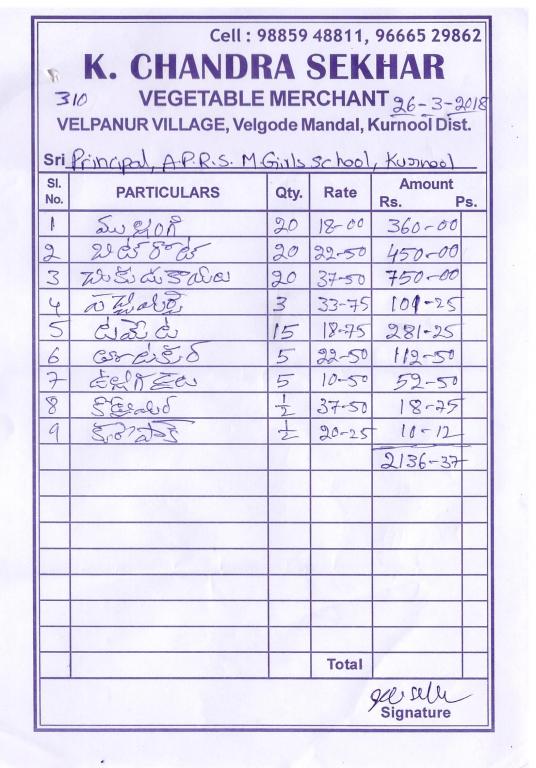 Cell : 98859 48811, 96665 29862
K. CHANDRA SEKHAR
310 VEGETABLE MERCHANT 26-3-2018
VELPANUR VILLAGE, Velgode Mandal, Kurnool Dist.
Sri Principal, A.P.R.S. M Girls School, Kurnool
Sl. No. PARTICULARS Qty. Rate Amount Rs. Ps.
1 ముల్లంగి 20 18-00 360-00
2 బీట్రోట్ 20 22-50 450-00
3 చికుడుకాయలు 20 37-50 750-00
4 3 33-75 101-25
5 టమేట 15 18-75 281-25
6 5 22-50 112-50
7 ఉల్లిగడ్డలు 5 10-50 52-50
8 ½ 37-50 18-75
9 ½ 20-25 10-12
2136-37
Total
Signature